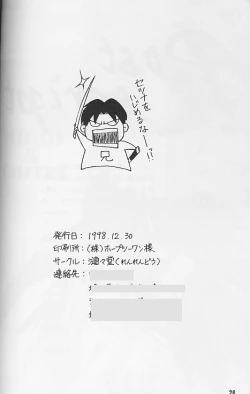 セツナを
いじめるなー!!
兄
発行日:1998.12.30
印刷所:(株)ホープツーワン様
サークル:漣々堂(れんれんどう)
連絡先:
28